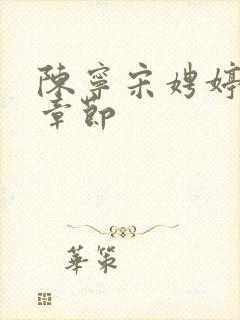 陳寧宋娉婷
章節
華策